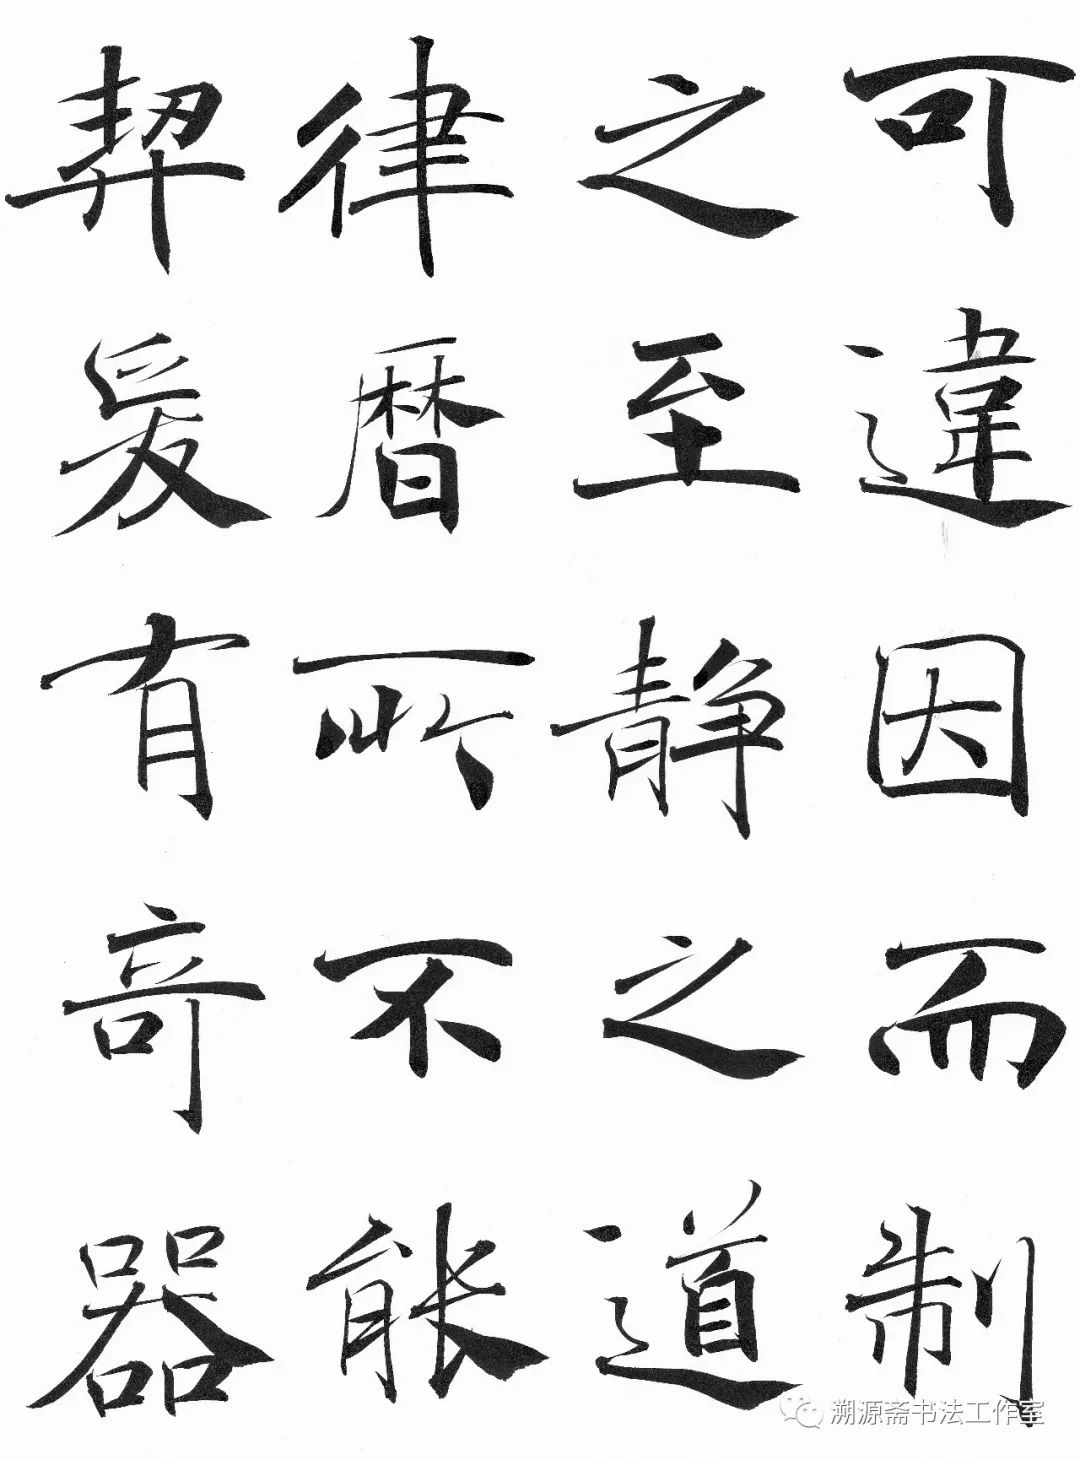 可違因而制
之至静之道
律暦所不能
契爰有竒器
溯源斋书法工作室